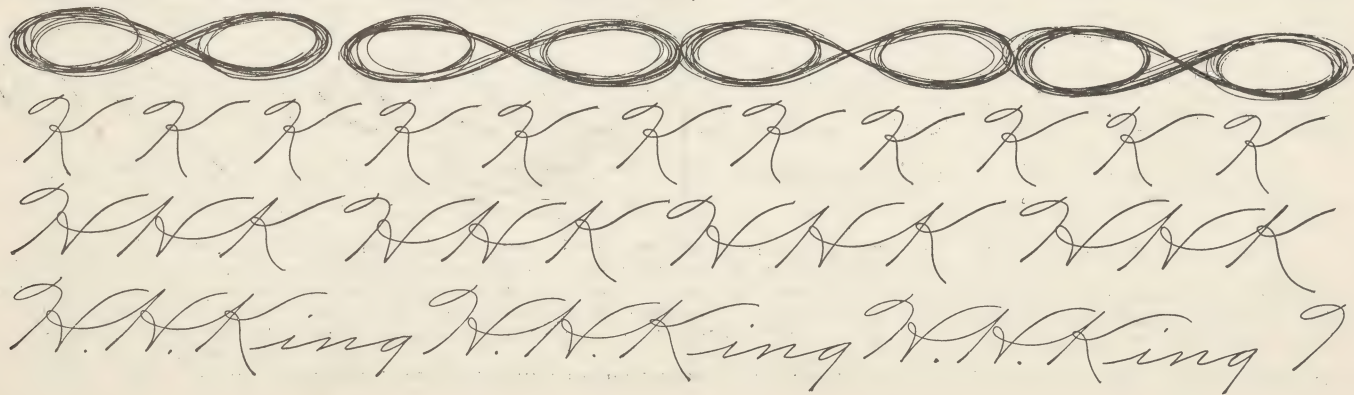 K K K K K K K K K K K
HHK HHK HHK HHK
H.H.King H.H.King H.H.King